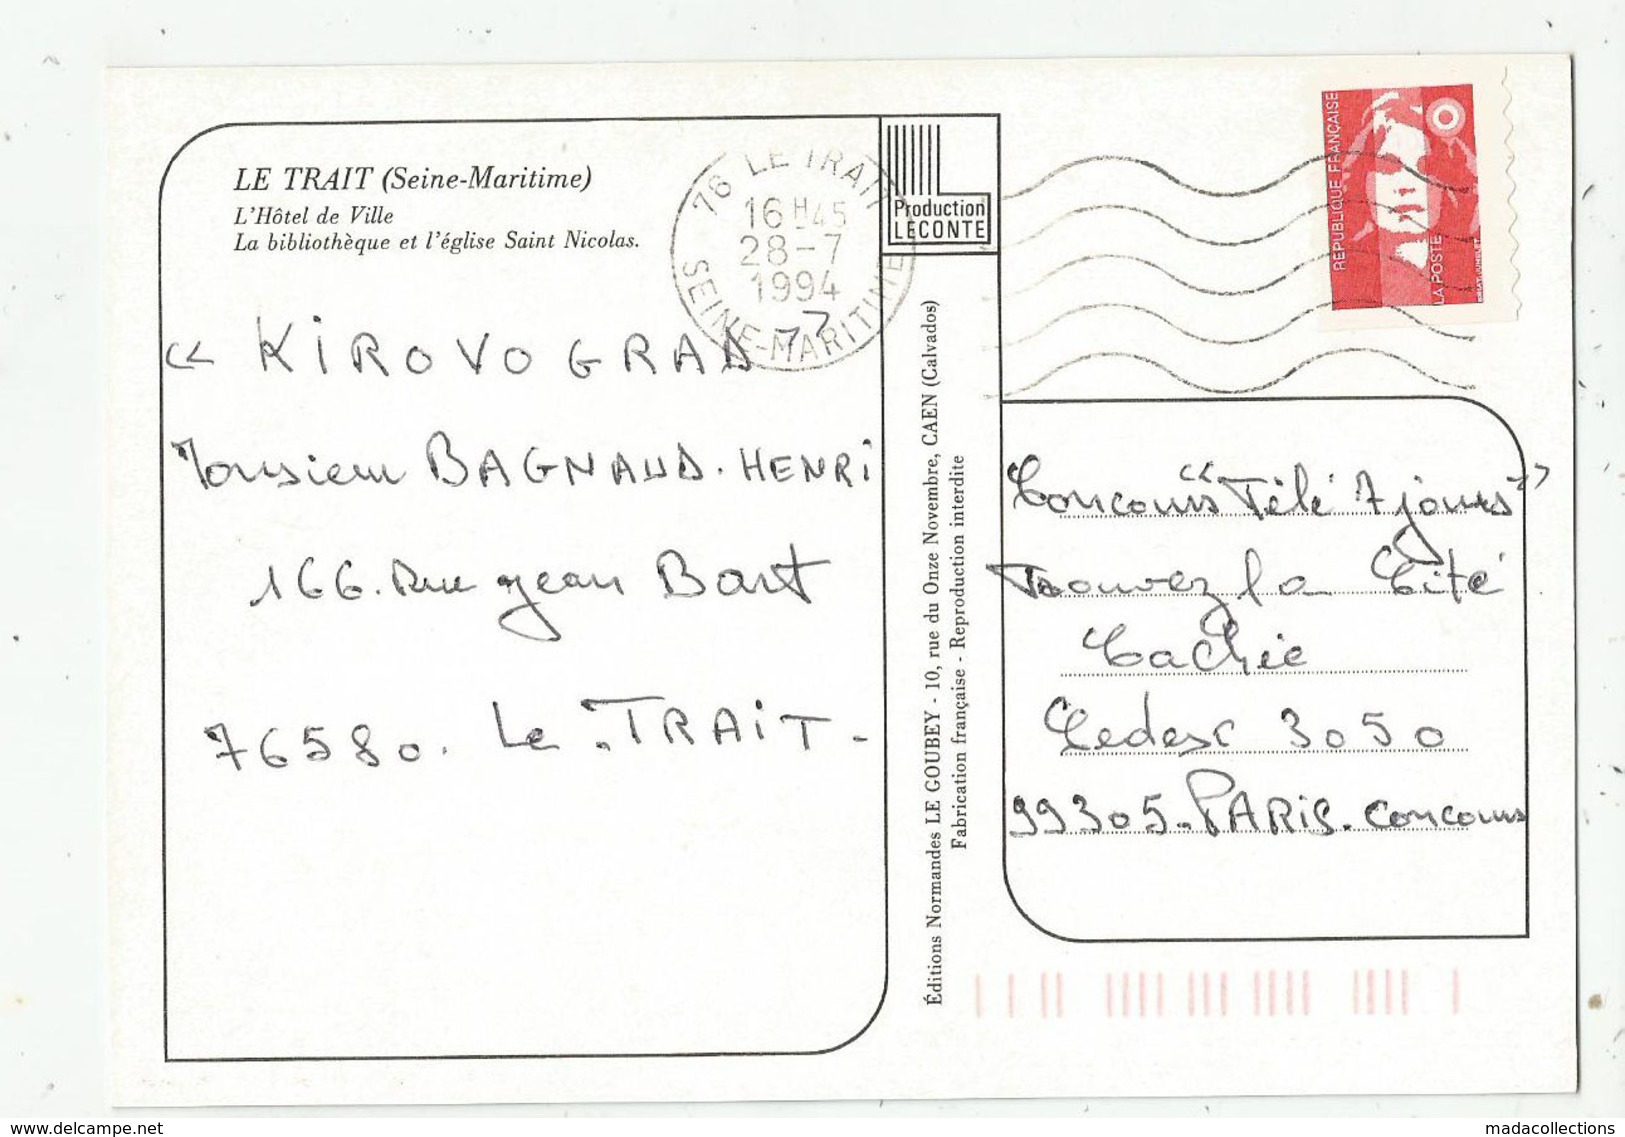 LE TRAIT (Seine-Maritime)
L'Hôtel de Ville
La bibliothèque et l'église Saint Nicolas.
76 LE TRAIT
16 H 45
28-7
1994
SEINE-MARITIME
Production
LECONTE
REPUBLIQUE FRANÇAISE
LA POSTE
« KIROVOGRAD »
Monsieur BAGNAUD. HENRI
166. Rue Jean Bart
76580. Le TRAIT-
Éditions Normandes LE GOUBEY - 10, rue du Onze Novembre, CAEN (Calvados)
Fabrication française - Reproduction interdite
Concours "Télé 7 jours"
Trouvez la Cité
Cachée
Cedex 3050
99305-PARIS. Concours
delcampe.net
madacollections